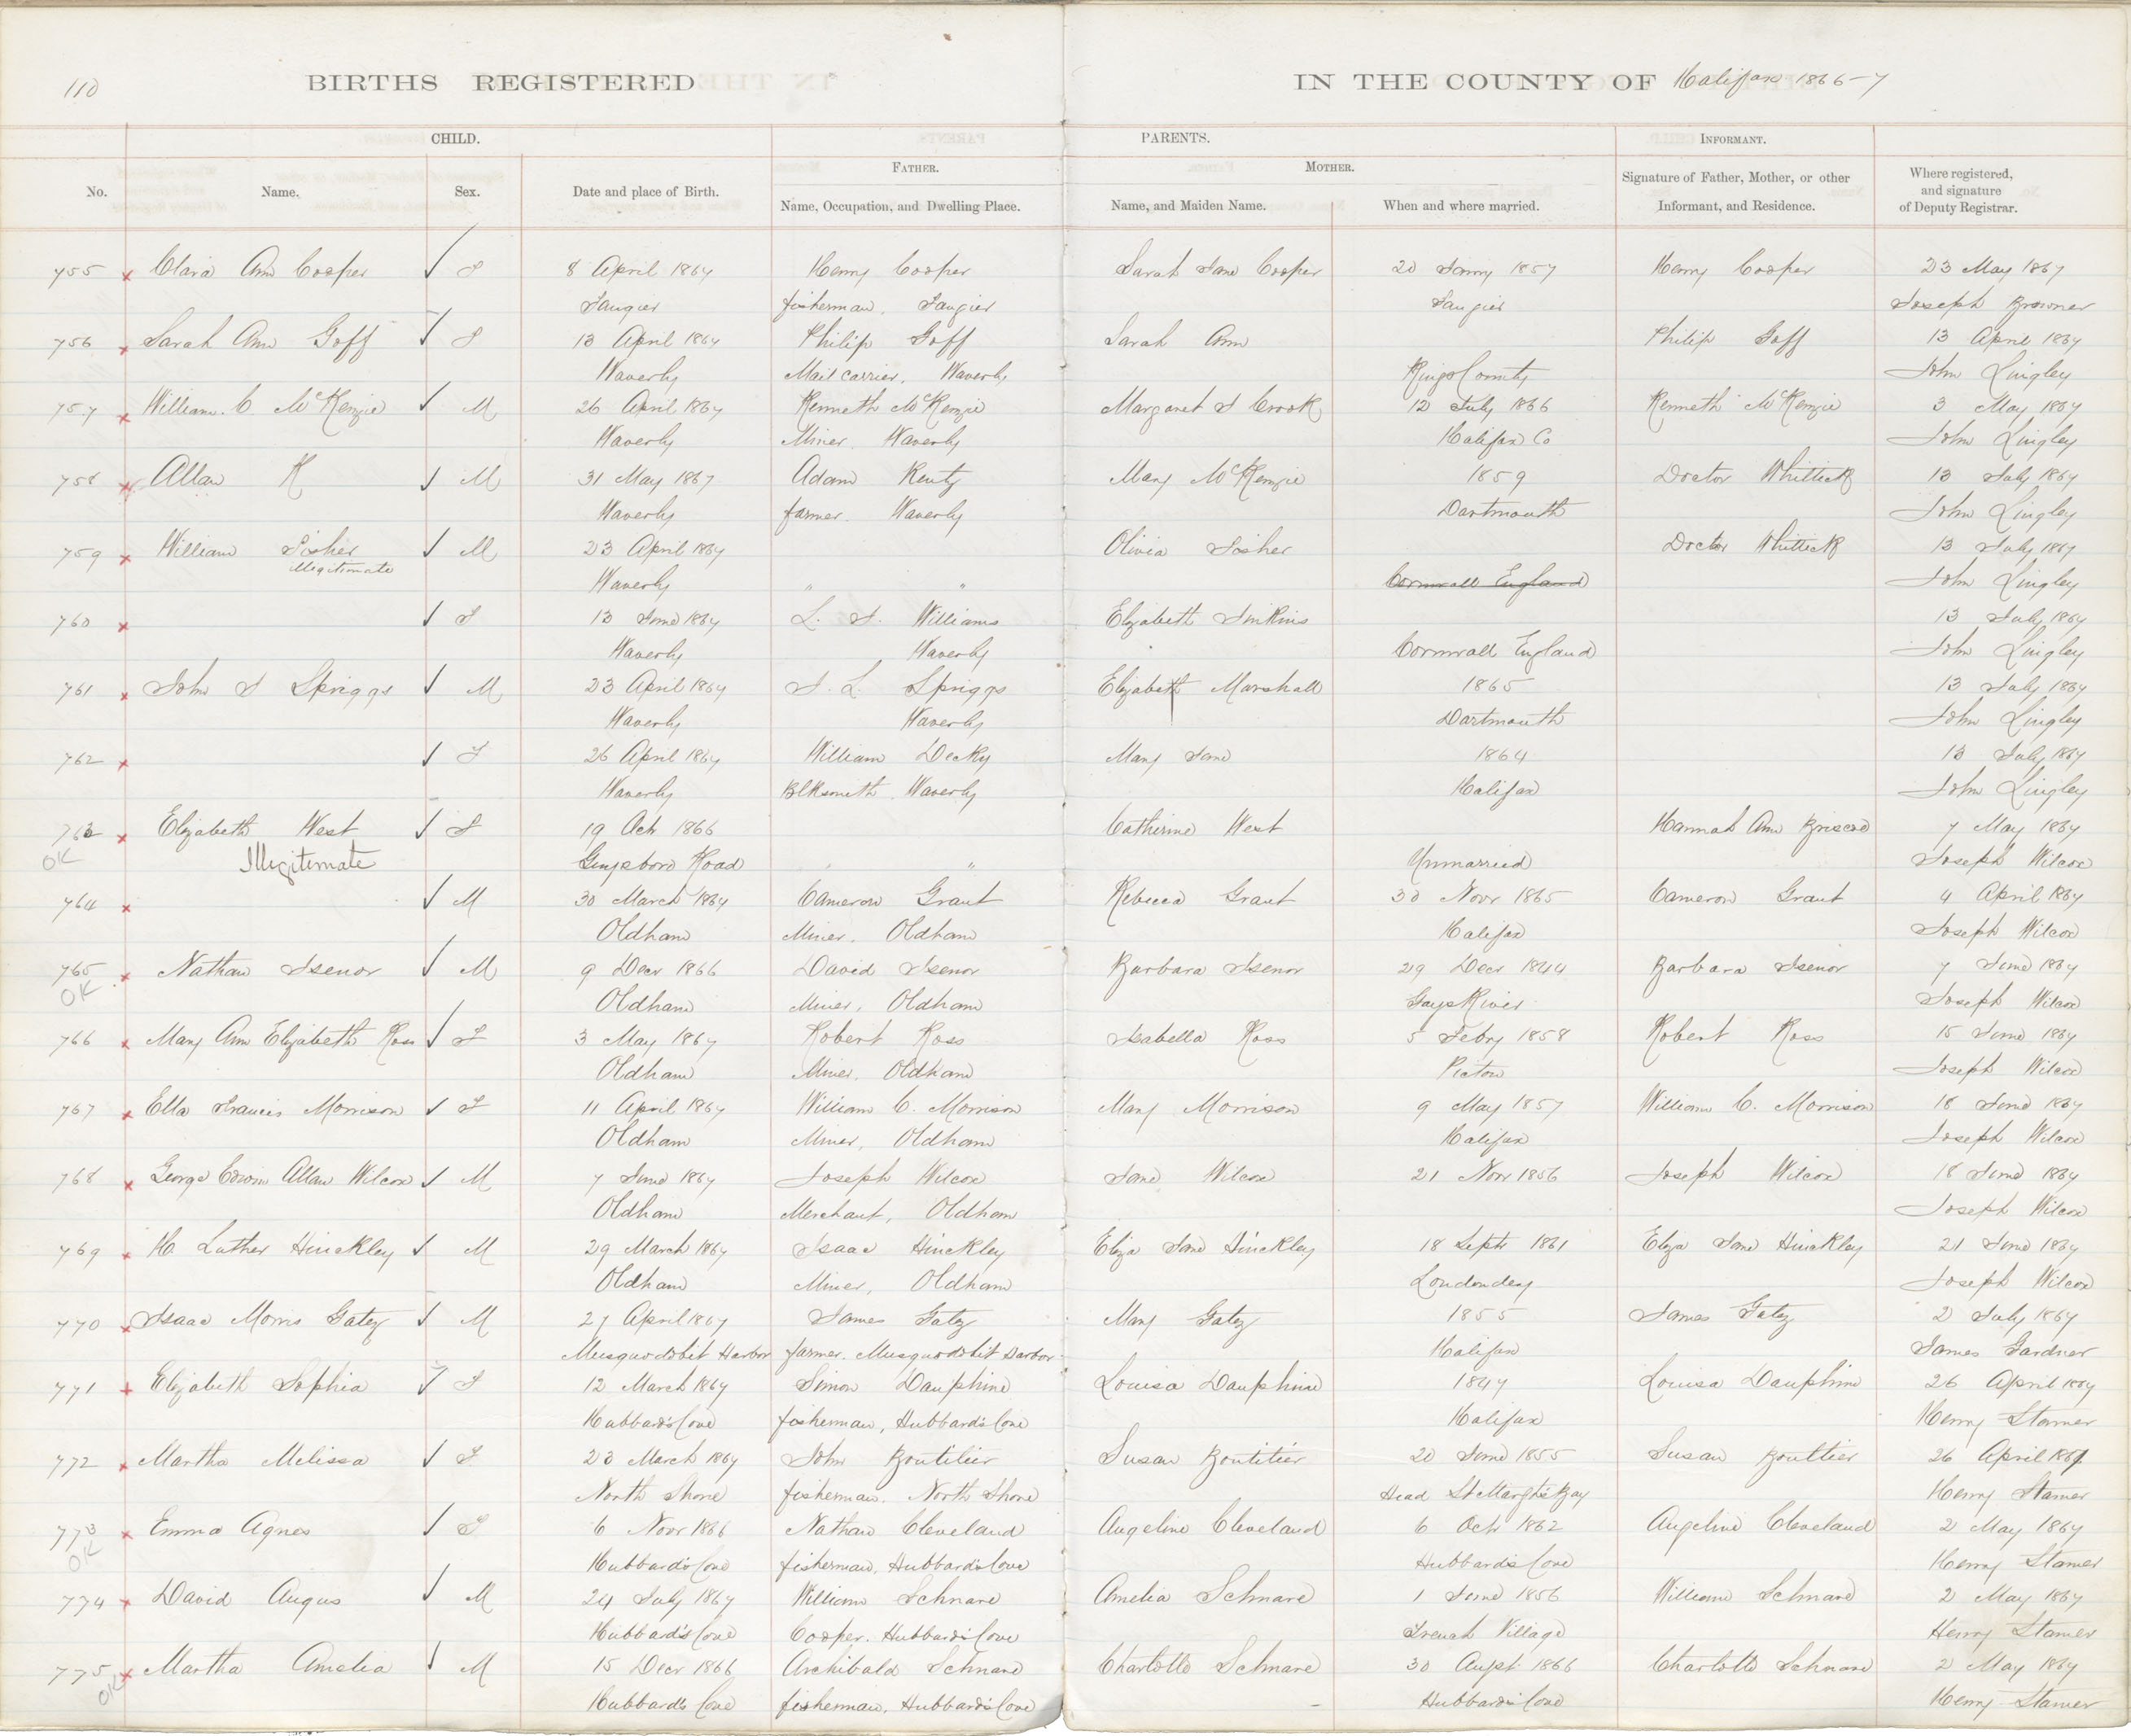 110 BIRTHS REGISTERED IN THE COUNTY OF Halifax 1866-7
CHILD. PARENTS. INFORMANT.
FATHER. MOTHER.
No. Name. Sex. Date and place of Birth. Name, Occupation, and Dwelling Place. Name, and Maiden Name. When and where married. Signature of Father, Mother, or other Informant, and Residence. Where registered, and signature of Deputy Registrar.
755 x Clara Ann Cooper ✓ F 8 April 1867 Henry Cooper Sarah Jane Cooper 20 Janry 1857 Henry Cooper 23 May 1867
Tangier fisherman, Tangier Tangier Joseph Browner
756 x Sarah Ann Goff ✓ F 13 April 1867 Philip Goff Sarah Ann Philip Goff 13 April 1867
Waverly Mail carrier, Waverly Kings County John Lingley
757 x William. C. McKenzie ✓ M 26 April 1867 Kenneth McKenzie Margaret J Crook 12 July 1866 Kenneth McKenzie 3 May 1867
Waverly Miner. Waverly Halifax Co John Lingley
758 x Allan K ✓ M 31 May 1867 Adam Kentz Mary McKenzie 1859 Doctor Whittick 13 July 1867
Waverly farmer. Waverly Dartmouth John Lingley
759 x William Fisher ✓ M 23 April 1867 Olivia Fisher Doctor Whittick 13 July 1867
Illegitimate Waverly " " Cornwall England John Lingley
760 x ✓ F 13 June 1867 L. J. Williams Elizabeth Jinkins 13 July 1867
Waverly Waverly Cornwall England John Lingley
761 x John J Spriggs ✓ M 23 April 1867 J. L. Spriggs Elizabeth Marshall 1865 13 July 1867
Waverly Waverly Dartmouth John Lingley
762 x ✓ F 26 April 1867 William Decky Mary Jane 1864 13 July 1867
Waverly Blksmith Waverly Halifax John Lingley
763 x Elizabeth West ✓ F 19 Oct 1866 Catherine West Hannah Ann Briscoe 7 May 1867
OK Illegitimate Guysboro Road " " Unmarried Joseph Wilcox
764 x ✓ M 30 March 1867 Cameron Grant Rebecca Grant 30 Novr 1865 Cameron Grant 4 April 1867
Oldham Miner. Oldham Halifax Joseph Wilcox
765 x Nathan Isenor ✓ M 9 Decr 1866 David Isenor Barbara Isenor 29 Decr 1844 Barbara Isenor 7 June 1867
OK Oldham Miner, Oldham Gays River Joseph Wilcox
766 x Mary Ann Elizabeth Ross ✓ F 3 May 1867 Robert Ross Isabella Ross 5 Febry 1858 Robert Ross 15 June 1867
Oldham Miner, Oldham Pictou Joseph Wilcox
767 x Ella Francis Morrison ✓ F 11 April 1867 William C. Morrison Mary Morrison 9 May 1857 William C. Morrison 18 June 1867
Oldham Miner, Oldham Halifax Joseph Wilcox
768 x George Edwin Allan Wilcox ✓ M 7 June 1867 Joseph Wilcox Jane Wilcox 21 Novr 1856 Joseph Wilcox 18 June 1867
Oldham Merchant, Oldham Joseph Wilcox
769 x H. Luther Hinckley ✓ M 29 March 1867 Isaac Hinckley Eliza Jane Hinckley 18 Septr 1861 Eliza Jane Hinckley 21 June 1867
Oldham Miner, Oldham Londondery Joseph Wilcox
770 x Isaac Morris Gatez ✓ M 27 April 1867 James Gatez Mary Gatez 1855 James Gatez 2 July 1867
Musquodobit Harbor farmer. Musquodobit Harbor Halifax James Gardner
771 x Elizabeth Sophia ✓ F 12 March 1867 Simon Dauphine Louisa Dauphine 1847 Louisa Dauphine 26 April 1867
Hubbard's Cove fisherman, Hubbard's Cove Halifax Henry Stamer
772 x Martha Melissa ✓ F 23 March 1867 John Boutilier Susan Boutilier 20 June 1855 Susan Boutlier 26 April 1867
North Shore fisherman. North Shore Head St Margts Bay Henry Stamer
773 x Emma Agnes ✓ F 6 Novr 1866 Nathan Cleveland Angeline Cleveland 6 Octr 1862 Angeline Cleveland 2 May 1867
OK Hubbard's Cove fisherman, Hubbard's Cove Hubbard's Cove Henry Stamer
774 x David Angus ✓ M 24 July 1867 William Schnare Amelia Schnare 1 June 1856 William Schnare 2 May 1867
Hubbard's Cove Cooper. Hubbard's Cove French Village Henry Stamer
775 x Martha Amelia ✓ M 15 Decr 1866 Archibald Schnare Charlotte Schnare 30 Augst 1866 Charlotte Schnare 2 May 1867
OK Hubbards Cove fisherman, Hubbard's Cove Hubbard's Cove Henry Stamer